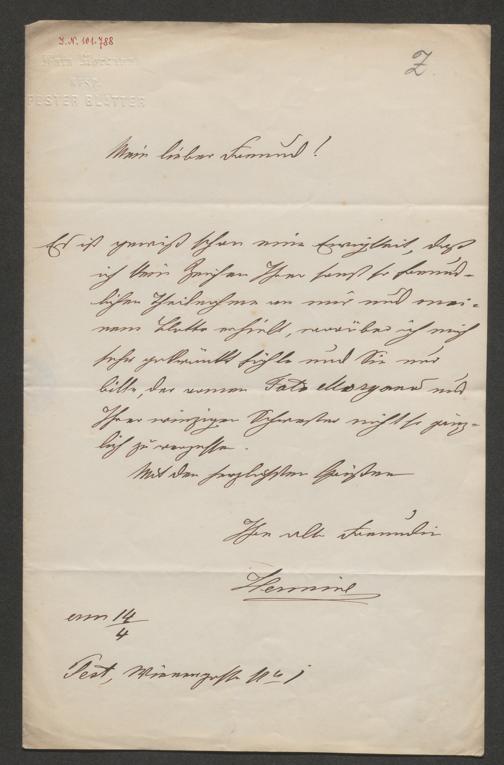 I.N. 101.788
Z
PESTER BLÄTTER
Mein lieber Freund!
Es ist gewiß schon eine Ewigkeit, daß
ich kein Zeichen Ihrer sonst so freund-
lichen Theilnahme an mir und mei-
nem Blatte erhielt, worüber ich mich
sehr gekränkt fühle und Sie nur
bitte, der armen Fata Morgana und
Ihrer einzigen Schwester nicht so gänz-
lich zu vergessen.
Mit den herzlichsten Grüßen
Ihre alte Freundin
Hermine
am 14/4
Pest, Wienergasse No 1